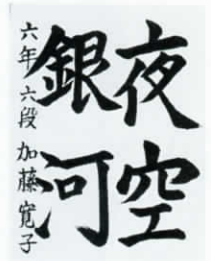 夜空
銀河
六年 六段 加藤寛子